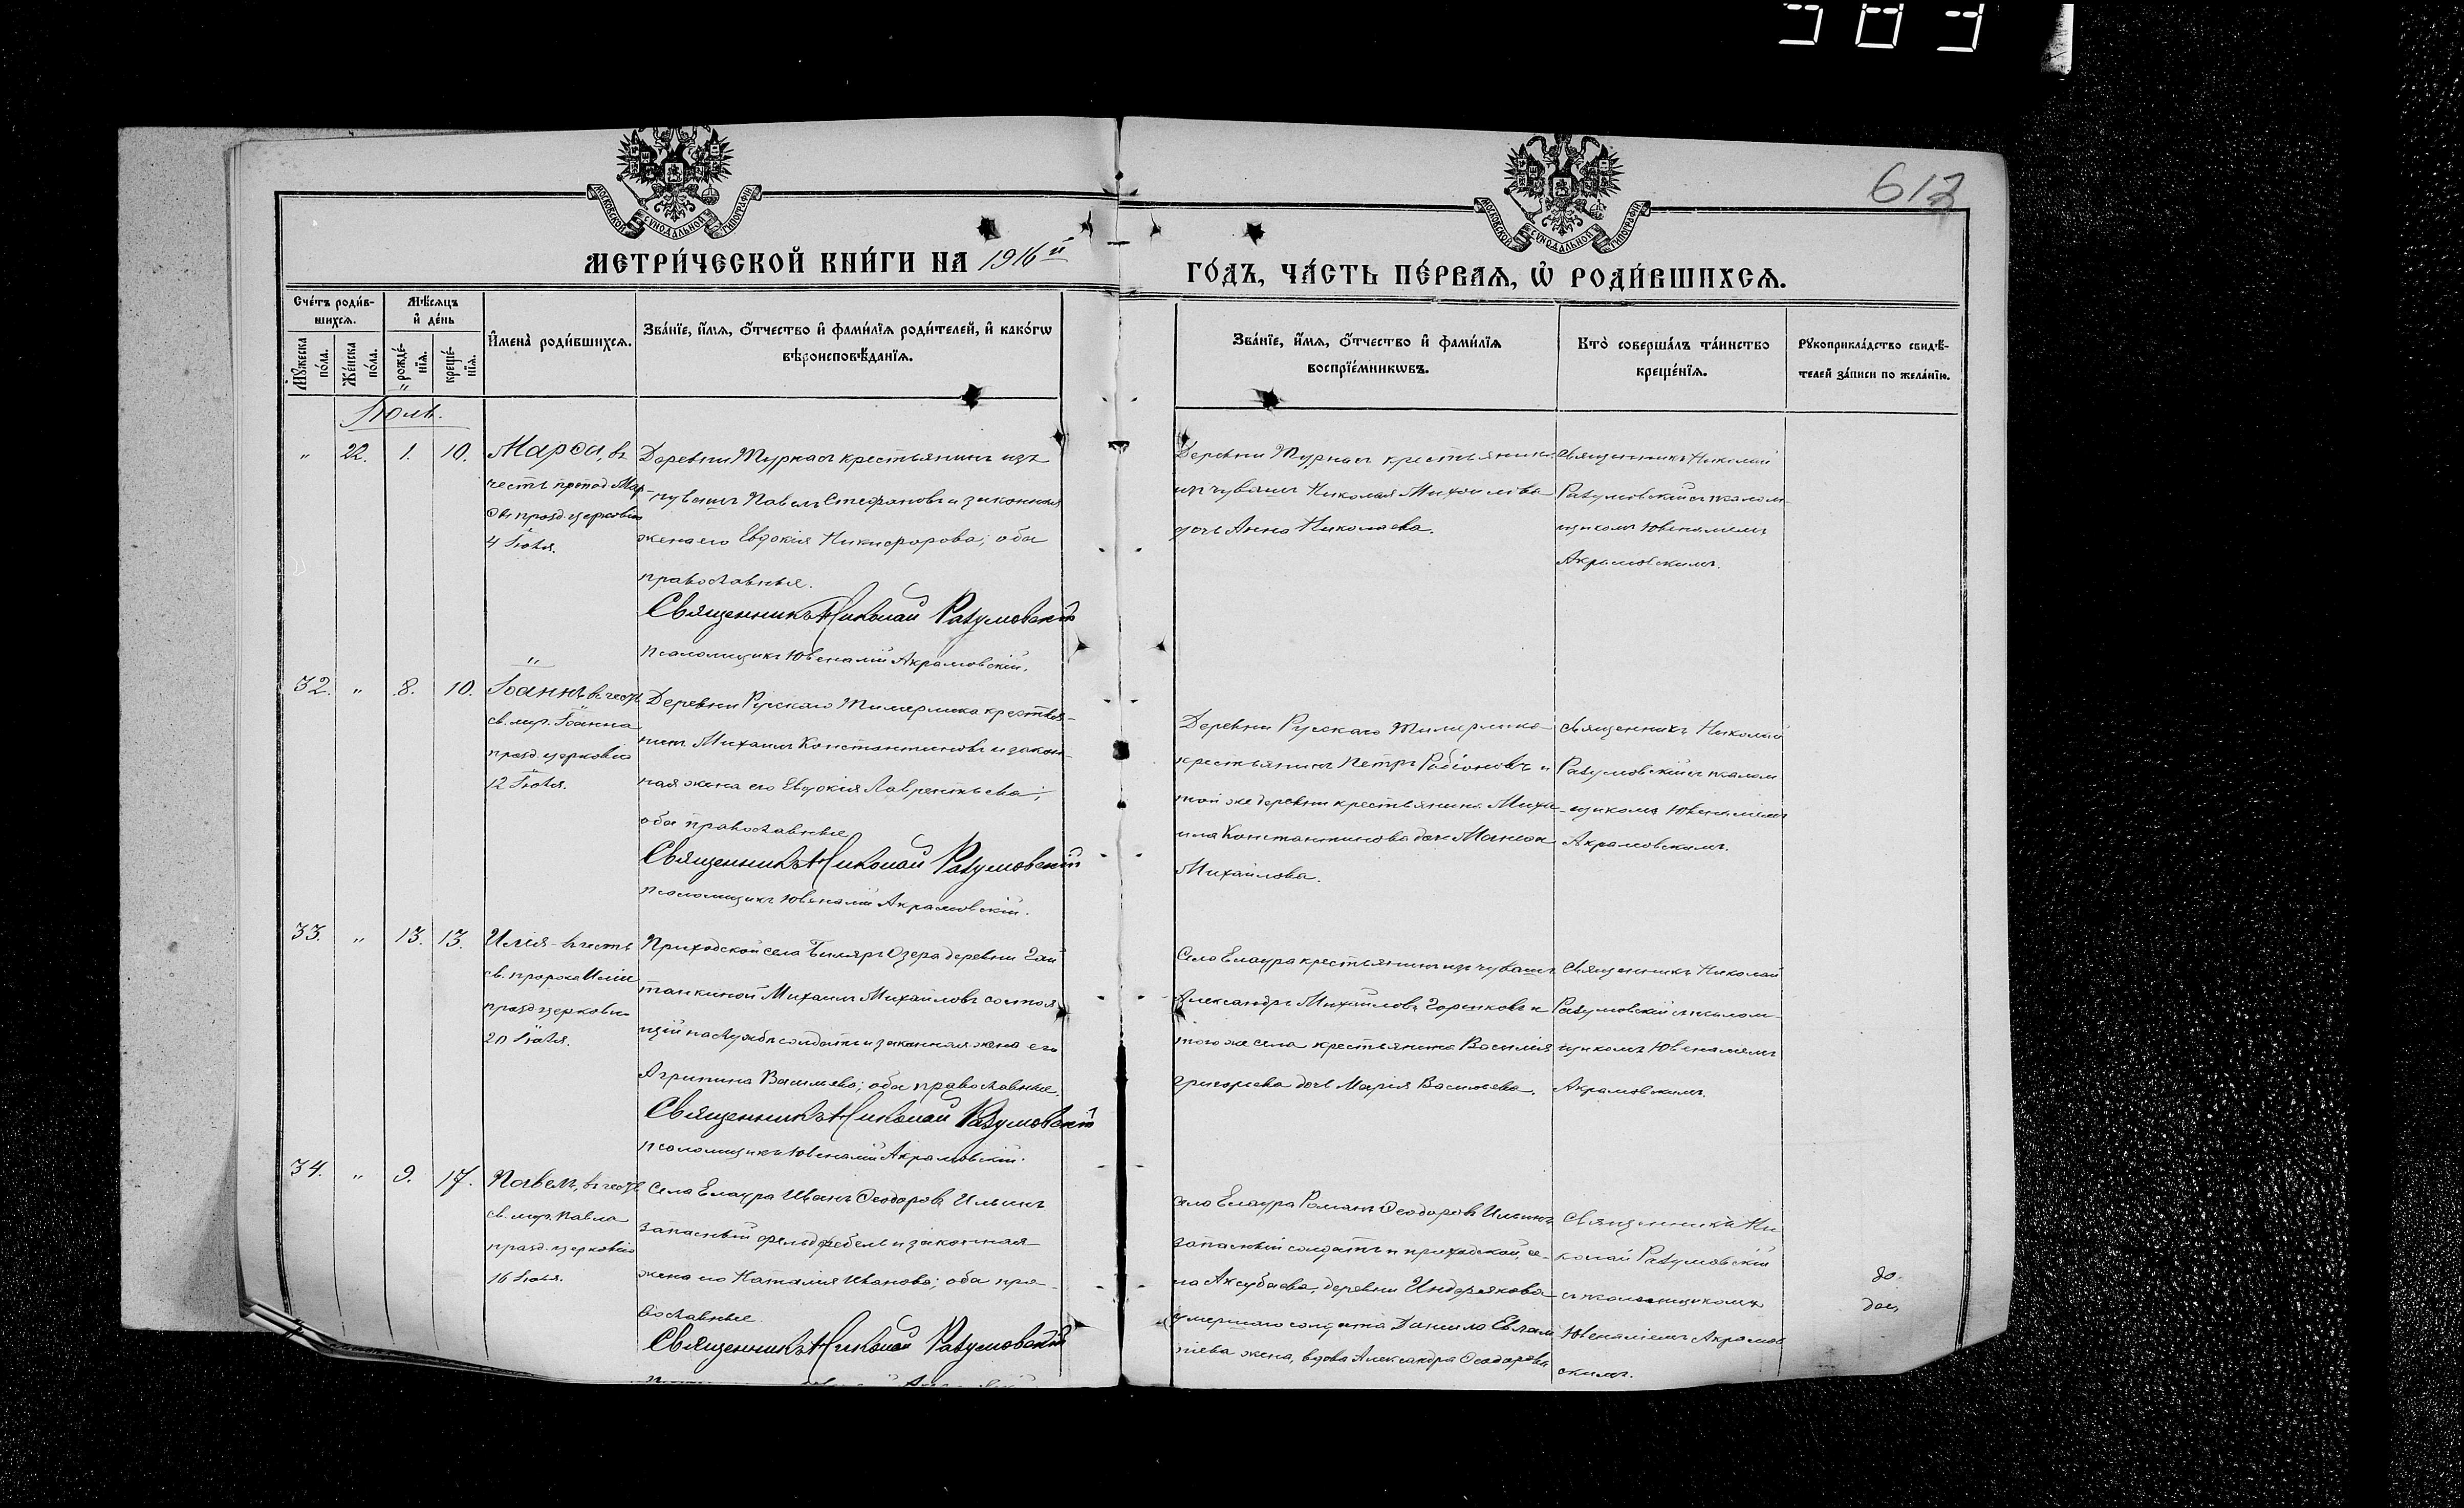 583
612
МОСКОВСКОЙ СѴНОДАЛЬНОЙ ТИПОГРАФІИ
МОСКОВСКОЙ СѴНОДАЛЬНОЙ ТИПОГРАФІИ
МЕТРИ́ЧЕСКОЙ КНИ́ГИ НА 1916й
ГО́ДЪ, ЧА́СТЬ ПЕ́РВАѦ, Ѽ РОДИ́ВШИХСѦ.
Сче́тъ роди́в-
шихсѧ.
Мꙋ́жеска по́ла.
Же́нска по́ла.
Мѣ́сѧцъ
и҆ де́нь
рожде́-
нїѧ.
креще́-
нїѧ.
И҆мена̀ роди́вшихсѧ.
Зва́нїе, и҆́мѧ, ѻ҆́тчество и҆ фами́лїѧ роди́телей, и҆ како́гѡ
вѣроисповѣ́данїѧ.
Зва́нїе, и҆́мѧ, ѻ҆́тчество и҆ фами́лїѧ
воспрїе́мникѡвъ.
Кто̀ соверша́лъ та́инство
креще́нїѧ.
Рꙋкоприкла́дство свидѣ́-
телей за́писи по жела́нїю.
Іюль.
" 22. 1. 10.
Марѳа, въ
честь препод. Мар-
ѳы празд. церковію
4 Іюля.
Деревни Турнаса крестьянинъ изъ
чувашъ Павелъ Стефановъ и законная
жена его Евдокія Никифорова; оба
православные.
Священникъ Николай Разумовскій
Псаломщикъ Ювеналій Акрамовскій.
Деревни Турнаса крестьянина
изъ чувашъ Николая Михайлова
дочь Анна Николаева.
Священникъ Николай
Разумовскій съ псалом-
щикомъ Ювеналіемъ
Акрамовскимъ.
32. " 8. 10.
Іоаннъ, въ честь
св. муч. Іоанна
празд. церковію
12 Іюля.
Деревни Русскаго Тимерлика крестья-
нинъ Михаилъ Константиновъ и закон-
ная жена его Евдокія Лаврентьева;
оба православные
Священникъ Николай Разумовскій
Псаломщикъ Ювеналій Акрамовскій.
Деревни Русскаго Тимерлика
крестьянинъ Петръ Родіоновъ и
той же деревни крестьянина Миха-
ила Константинова дочь
Михайлова.
Священникъ Николай
Разумовскій съ псалом
щикомъ Ювеналіемъ
Акрамовскимъ.
33. " 13. 13.
Илія въ честь
св. пророка Иліи
празд. церковію
20 Іюля.
Приходской села Биляръ Озера деревни
Михаилъ Михайловъ состоя
щій на службѣ солдатъ и законная жена его
Агрипина Васильева; оба православные.
Священникъ Николай Разумовскій
Псаломщикъ Ювеналій Акрамовскій.
Села Елаура крестьянинъ изъ чувашъ
Александръ Михайловъ Горшковъ и
того же села крестьянина Василія
Григорьева дочь Марія Васильева.
Священникъ Николай
Разумовскій съ псалом-
щикомъ Ювеналіемъ
Акрамовскимъ.
34. " 9. 17.
Павелъ, въ честь
св. муч. Павла
празд. церковію
16 Іюля.
Села Елаура Иванъ Ѳеодоровъ Ильинъ
запасный фельдфебель и законная
жена его Наталія Иванова; оба пра-
вославные.
Священникъ Николай Разумовскій
Села Елаура Романъ Ѳеодоровъ Ильинъ
запасный солдатъ и приходской се-
ла Аксубаева, деревни Индерякова
умершаго солдата Даніила Евлам
піева жена, вдова Александра Ѳеодорова
Священникъ Ни
колай Разумовскій
съ псаломщикомъ
Ювеналіемъ Акрамов
скимъ.